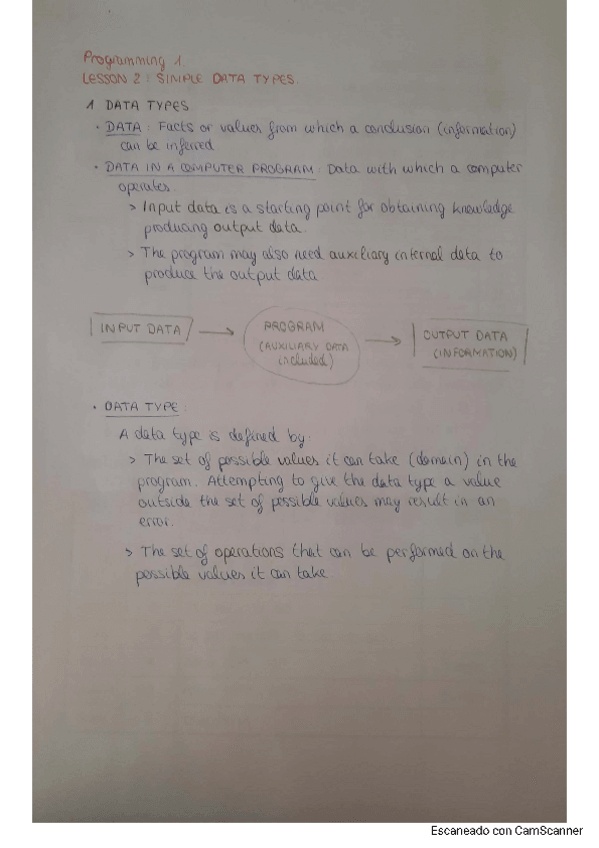 Programming 1.
LESSON 2: SIMPLE DATA TYPES.
1 DATA TYPES
• DATA: Facts or values from which a conclusion (information)
can be inferred
• DATA IN A COMPUTER PROGRAM: Data with which a computer
operates.
> Input data is a starting point for obtaining knowledge
producing output data.
> The program may also need auxiliary internal data to
produce the output data
INPUT DATA → PROGRAM (AUXILIARY DATA included) → OUTPUT DATA (INFORMATION)
• DATA TYPE:
A data type is defined by:
> The set of possible values it can take (domain) in the
program. Attempting to give the data type a value
outside the set of possible values may result in an
error.
> The set of operations that can be performed on the
possible values it can take.
Escaneado con CamScanner